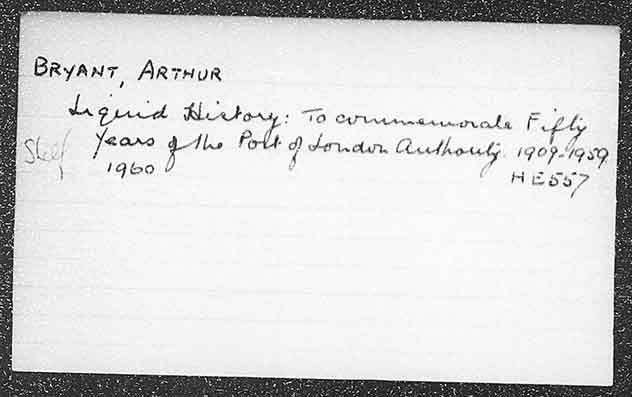 BRYANT, ARTHUR
Liquid History: To commemorate Fifty
Shelf Years of the Port of London Authority. 1909-1959
1960
HE557